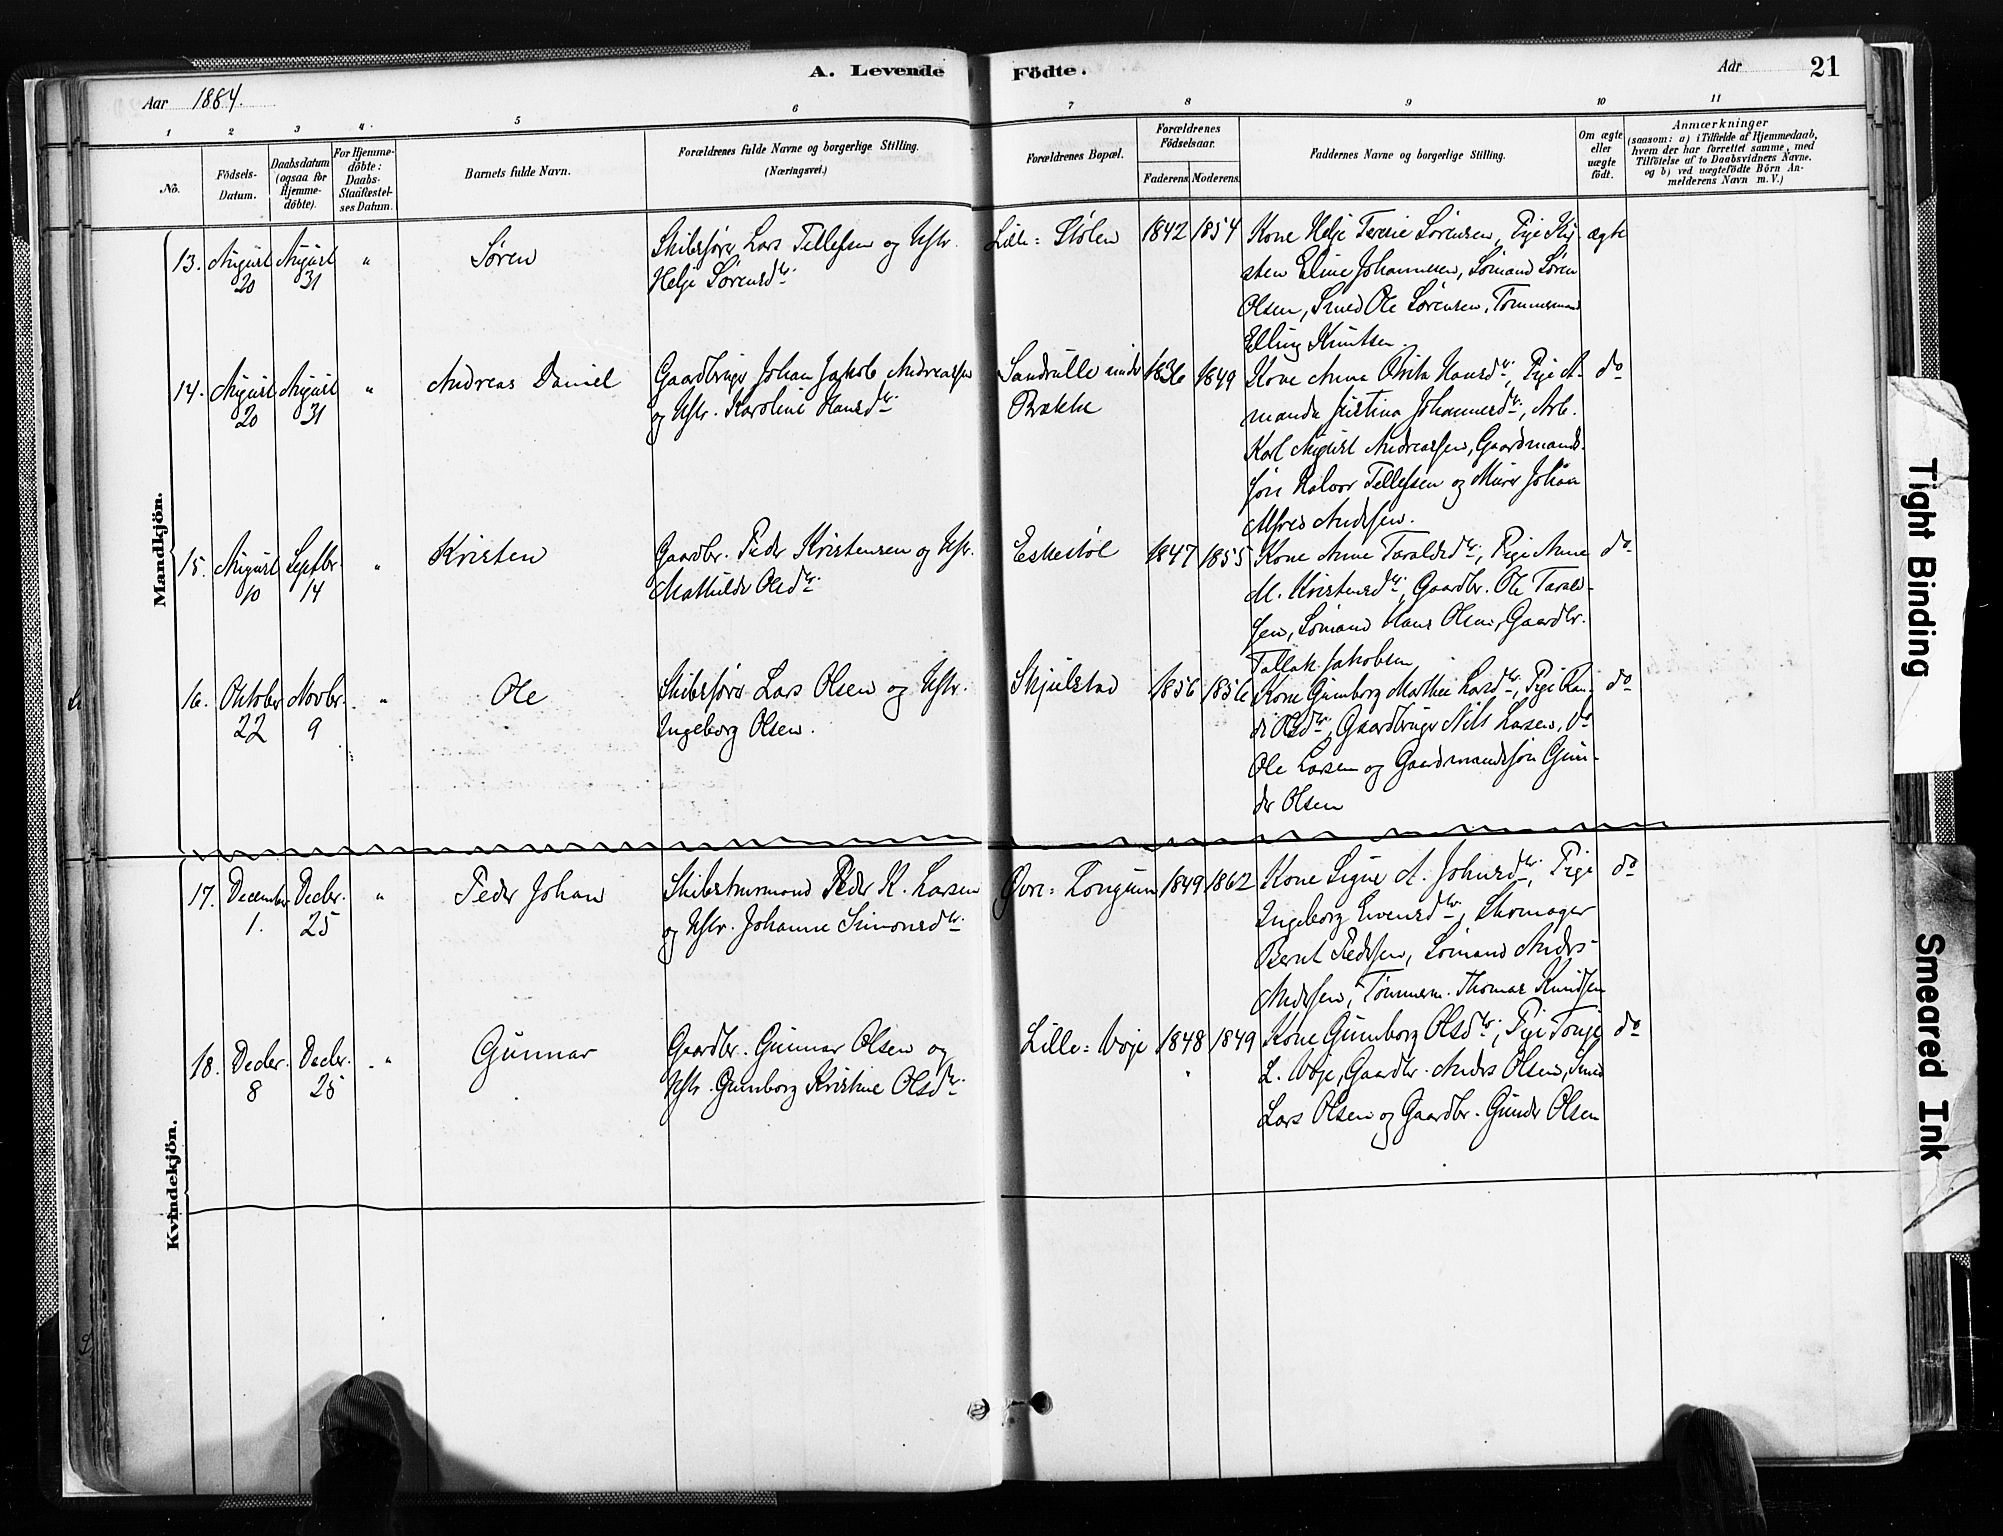 A. Levende
Födte.
Aar 1884.
Aar
21
1
2
3
4.
5
6
7
8
9
10
11
No.
Födsels-
Datum.
Daabsdatum
(ogsaa for
Hjemme-
döbte).
For Hjemme-
döbte:
Daabs-
Stadfæstel-
ses Datum.
Barnets fulde Navn.
Forældrenes fulde Navne og borgerlige Stilling.
(Næringsvei.)
Forældrenes Bopæl.
Forældrenes
Födselsaar.
Faderens.
Moderens.
Faddernes Navne og borgerlige Stilling.
Om ægte
eller
uægte
födt.
Anmærkninger
(saasom: a) i Tilfælde af Hjemmedaab,
hvem der har forrettet samme, med
Tilföielse af to Daabsvidners Navne.
og b) ved uægtefödte Börn An-
melderens Navn m. V.)
Mandkjön.
13.
August
20
August
31
"
Søren
Skibsfører Lars Tellefsen og Hstr.
Helje Sørensdtr.
Lille= Stølen
1842
1854
Kone Helje Terese Sørensen, Pige Kir-
sten Eline Johannesen, Sømand Søren
Olsen, Smed Ole Sørensen, Tømmermand
Elling Knutsen
ægte
14.
August
20
August
31
"
Andreas Daniel
Gaardbruger Johan Jakob Andreassen
og Hstr. Karoline Hansdtr.
Sandrulle under
Brække
1836
1849
Kone Anna Hansdtr., Pige A-
manda Justina Johannesdtr., Arb.
Karl August Andreassen, Gaardmands-
søn Halvor Tellefsen og Murer Johan
Alfred Andersen.
do
15.
August
10
Septbr.
14
"
Kristen
Gaardbr. Peder Kristensen og Hstr.
Mathilde Olsdtr.
Eskestøl
1847
1855
Kone Anne Taraldsdtr., Pige Anne
M. Kristensdtr., Gaardbr. Ole Tarald-
sen, Sømand Hans Olsen, Gaardbr.
Tallak Jakobsen
do
16.
Oktober
22
Novbr.
9
"
Ole
Skibsfører Lars Olsen og Hstr.
Ingeborg Olsen.
Skjulstad
1856
1856
Kone Gunborg Marthe Larsdtr., Pige Ran-
di Olsdtr., Gaardbruger Nils Larsen, do
Ole Larsen og Gaardmandssøn Gun-
der Olsen
do
17.
December
1.
Decbr.
25
"
Peder Johan
Skibstimmermand Peder K. Larsen
og Hstr. Johanne Simonsdtr.
Øvre= Longum
1849
1862
Kone Signe A. Johnsdtr., Pige
Ingeborg Evensdtr., Skomager
Bernt Pedersen, Sømand Anders
Andersen, Tømmerm. Thomas Knudsen
do
18.
Decbr.
8
Decbr.
25
"
Gunnar
Gaardbr. Gunnar Olsen og
Hstr. Gunborg Kristine Olsdtr.
Lille= Voje
1848
1849
Kone Gunborg Olsdtr., Pige Tonje
L. Voje, Gaardbr. Anders Olsen, Smed
Lars Olsen og Gaardbr. Gunder Olsen
do
Kvindekjön.
Tight Binding
Smeared Ink